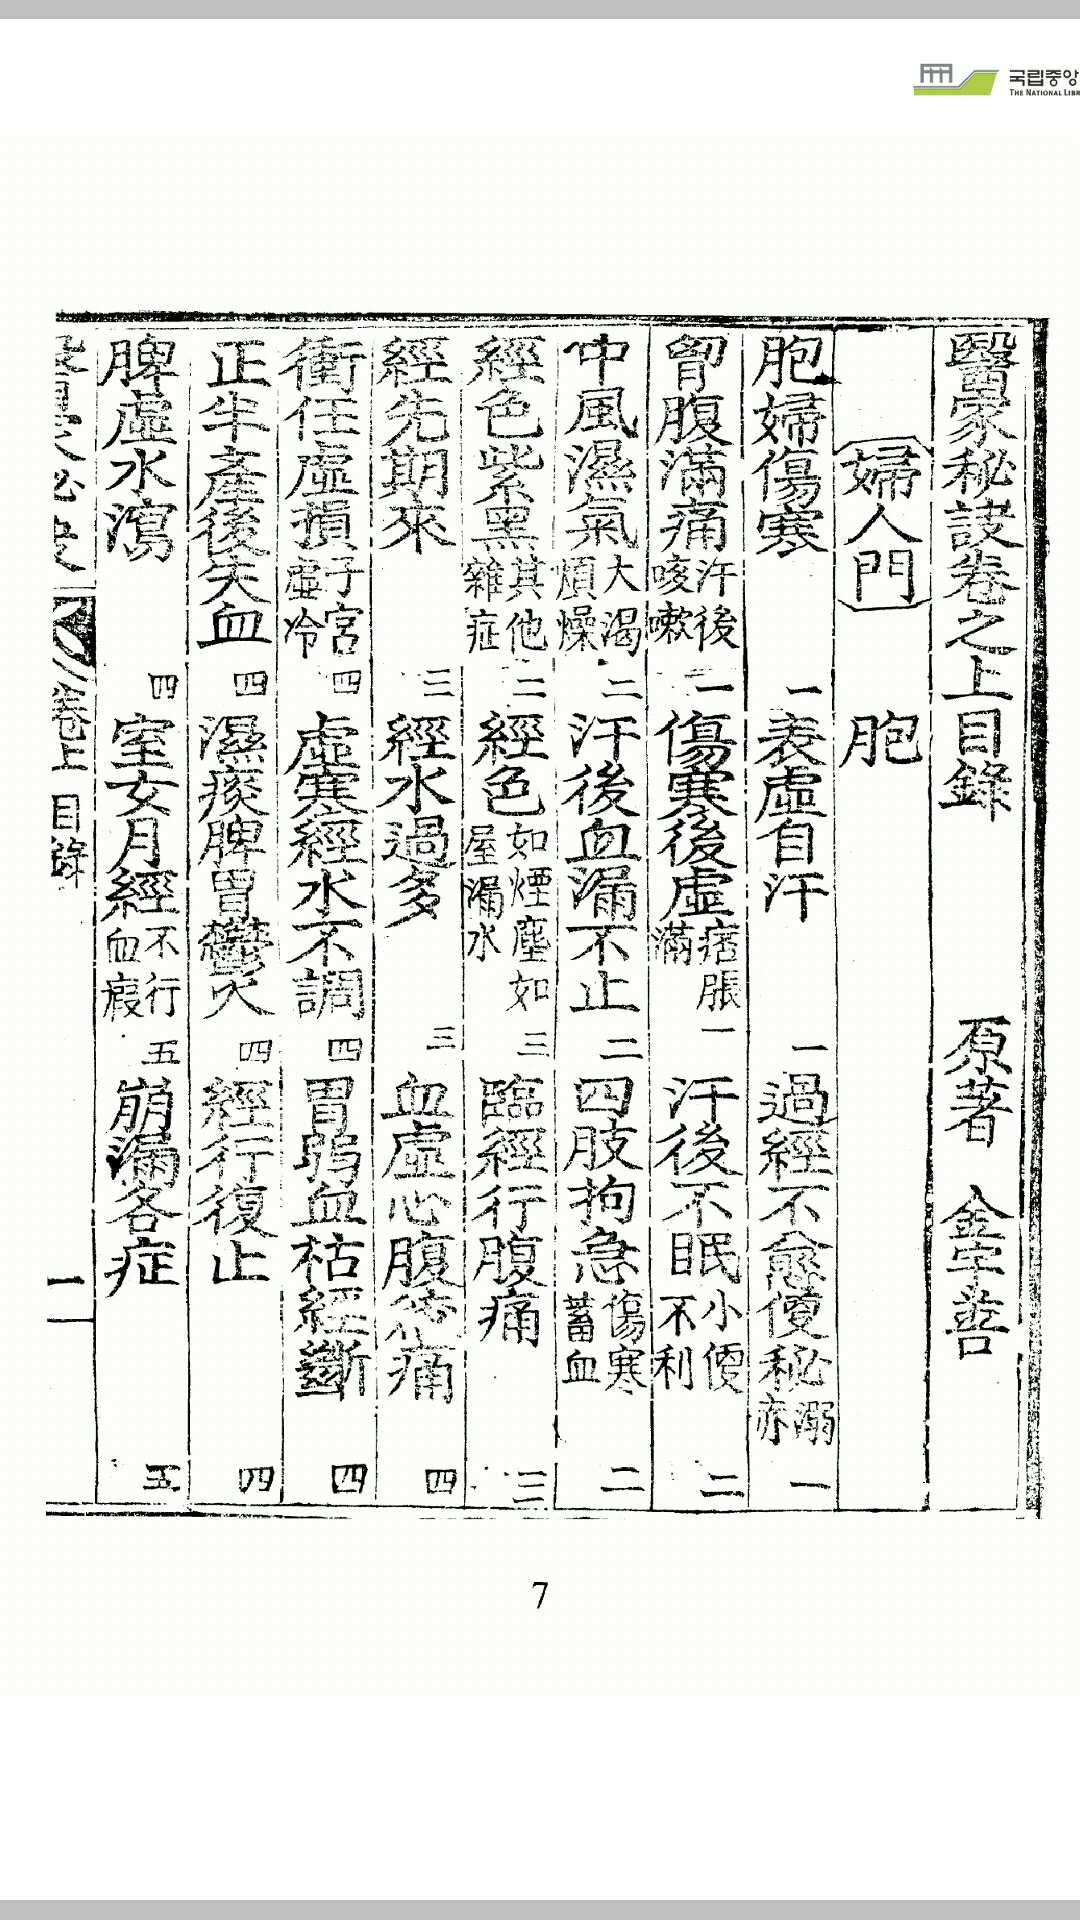 국립중앙
THE NATIONAL LIBR
醫家秘訣卷之上目錄 原著 金宇善
婦人門 胞
胞婦傷寒 一 表虛自汗 一 過經不愈便秘溺赤 一
胷腹滿痛汗後咳嗽 一 傷寒後虛痞脹滿 一 汗後不眠小便不利 二
中風濕氣大渴煩燥 二 汗後血漏不止 二 四肢拘急傷寒蓄血 二
經色紫黑其他雜症 二 經色如煙塵如屋漏水 三 臨經行腹痛 三
經先期來 三 經水過多 三 血虛心腹疼痛 四
衝任虛損子宮虛冷 四 虛寒經水不調 四 胃弱血枯經斷 四
正半產後失血 四 濕痰脾胃鬱火 四 經行復止 四
脾虛水瀉 四 室女月經不行血瘕 五 崩漏各症 五
卷上 目錄 一
7